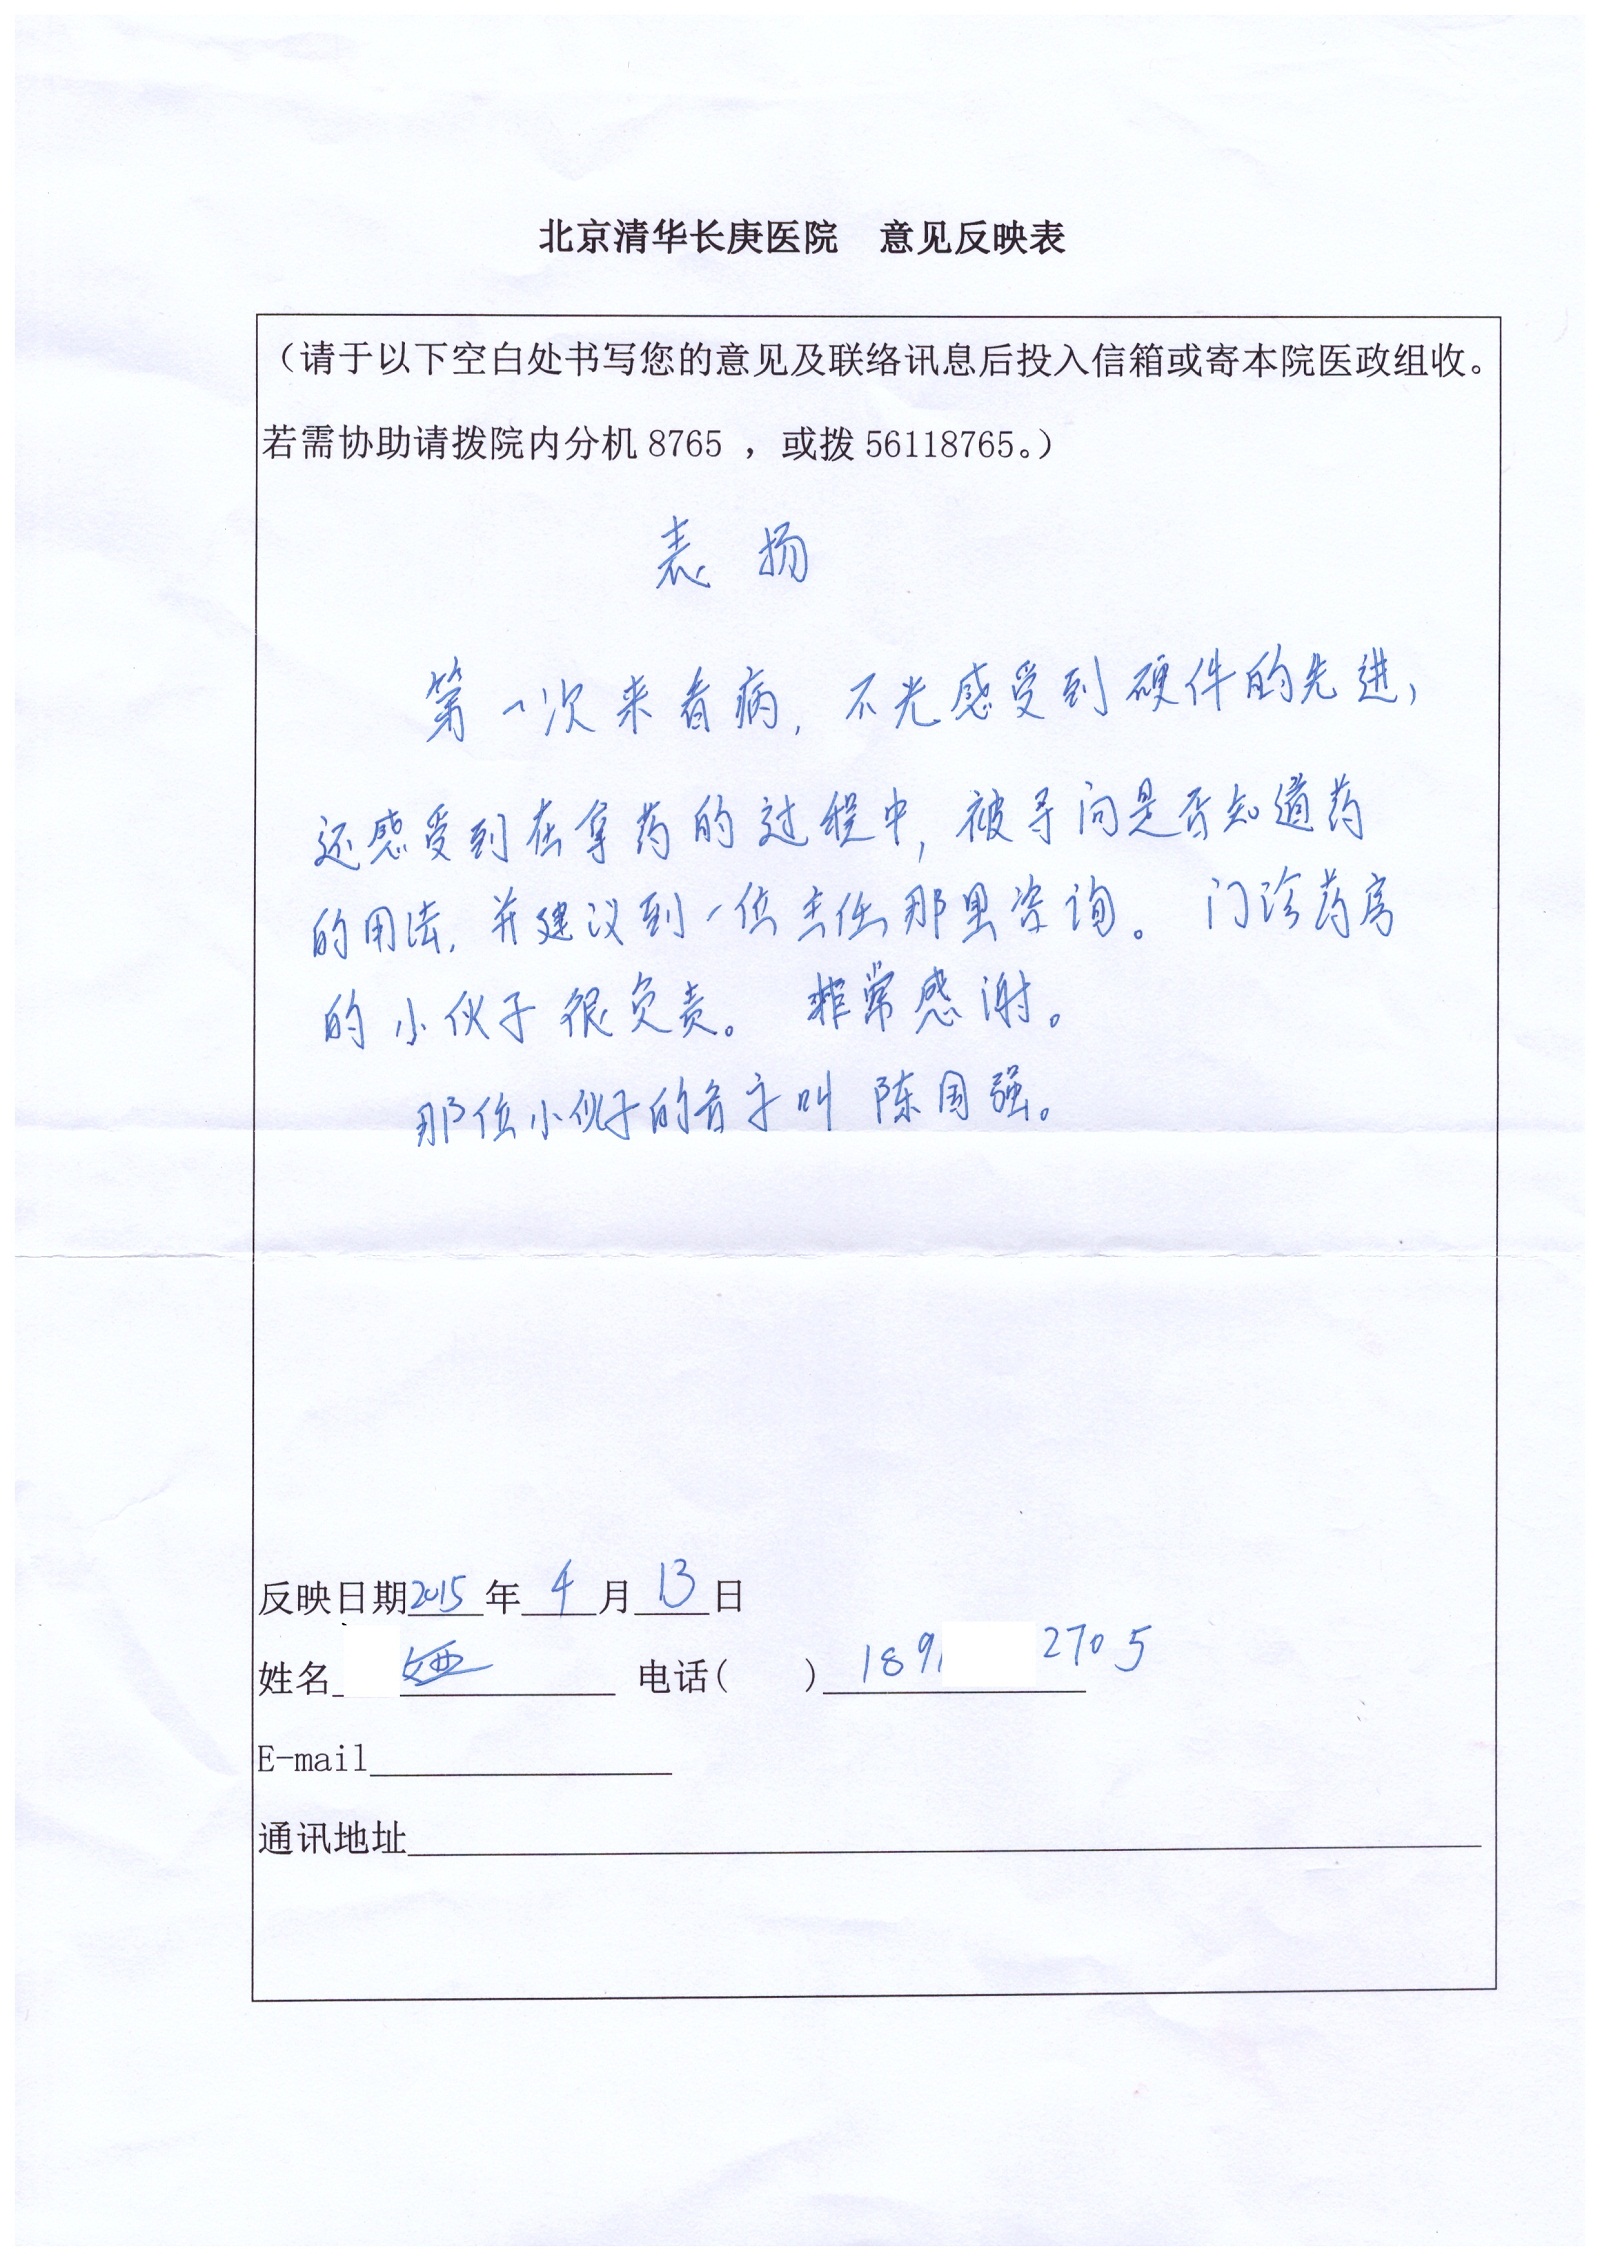 北京清华长庚医院 意见反映表
（请于以下空白处书写您的意见及联络讯息后投入信箱或寄本院医政组收。
若需协助请拨院内分机 8765 ，或拨 56118765。）
表扬
第一次来看病，不光感受到硬件的先进，
还感受到在拿药的过程中，被寻问是否知道药
的用法，并建议到一位主任那里咨询。门诊药房
的小伙子很负责。非常感谢。
那位小伙子的名字叫 陈国强。
反映日期2015年4月13日
姓名 娅 电话( ) 189 2705
E-mail
通讯地址